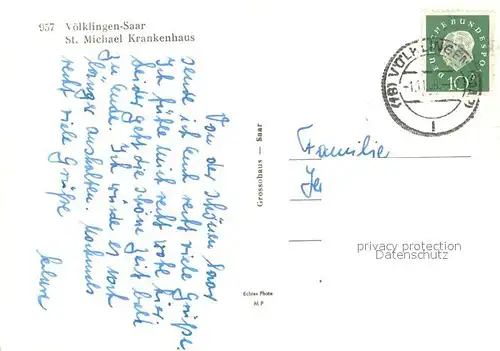 957 Völklingen-Saar
St. Michael Krankenhaus
Von der schönen Saar
sende ich Euch recht viele Grüße.
Ich fühle mich recht wohl hier
leider geht die schöne Zeit bald
zu Ende. Ich würde es noch
länger aushalten. Nochmals
recht viele Grüße
Grossohaus — Saar
Echtes Photo
M P
DEUTSCHE BUNDESPOST
10
(18) VÖLKLINGEN
1
Familie
privacy protection
DATENSCHUTZ